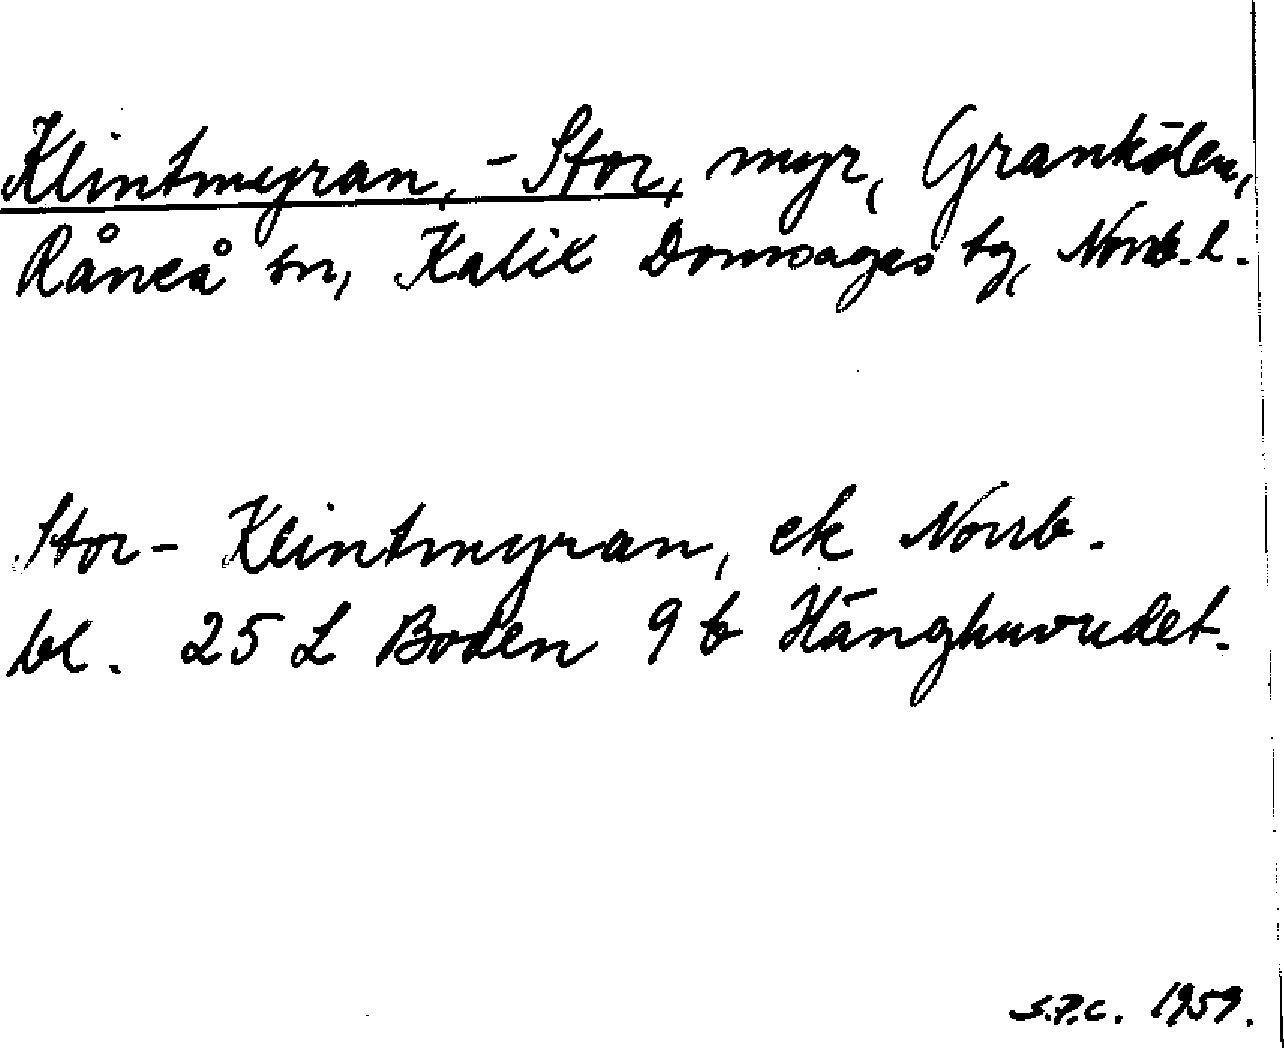 Klintmyran, -Stor, myr, Grankölen,
Råneå sn, Kalix Domsagas tg, Norrb. l.
Stor-Klintmyran, ek Norrb.
bl. 25 L Boden 9 b Hänghuvudet.
S.P.C. 1959.